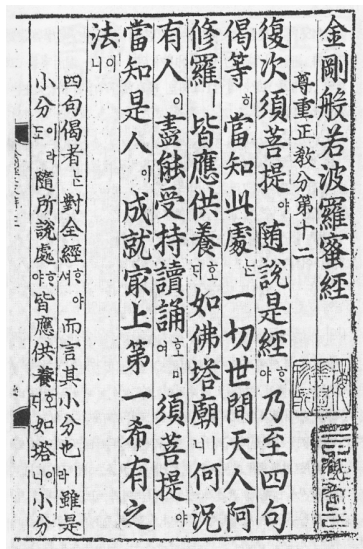 金剛般若波羅蜜經
尊重正教分第十二
復次須菩提야 随說是經ᄒᆞ야 乃至四句
偈等히 當知此處ᄂᆞᆫ 一切世間天人阿
修羅ㅣ 皆應供養호ᄃᆡ 如佛塔廟니 何況
有人이 盡能受持讀誦호미여 須菩提야
當知是人이 成就㝡上第一希有之
法이니
四句偈者ᄂᆞᆫ 對全經ᄒᆞ야셔 而言其小分也ㅣ라 雖是
小分이라도 隨所說處ᄒᆞ야 皆應供養호ᄃᆡ 如塔이니 小分